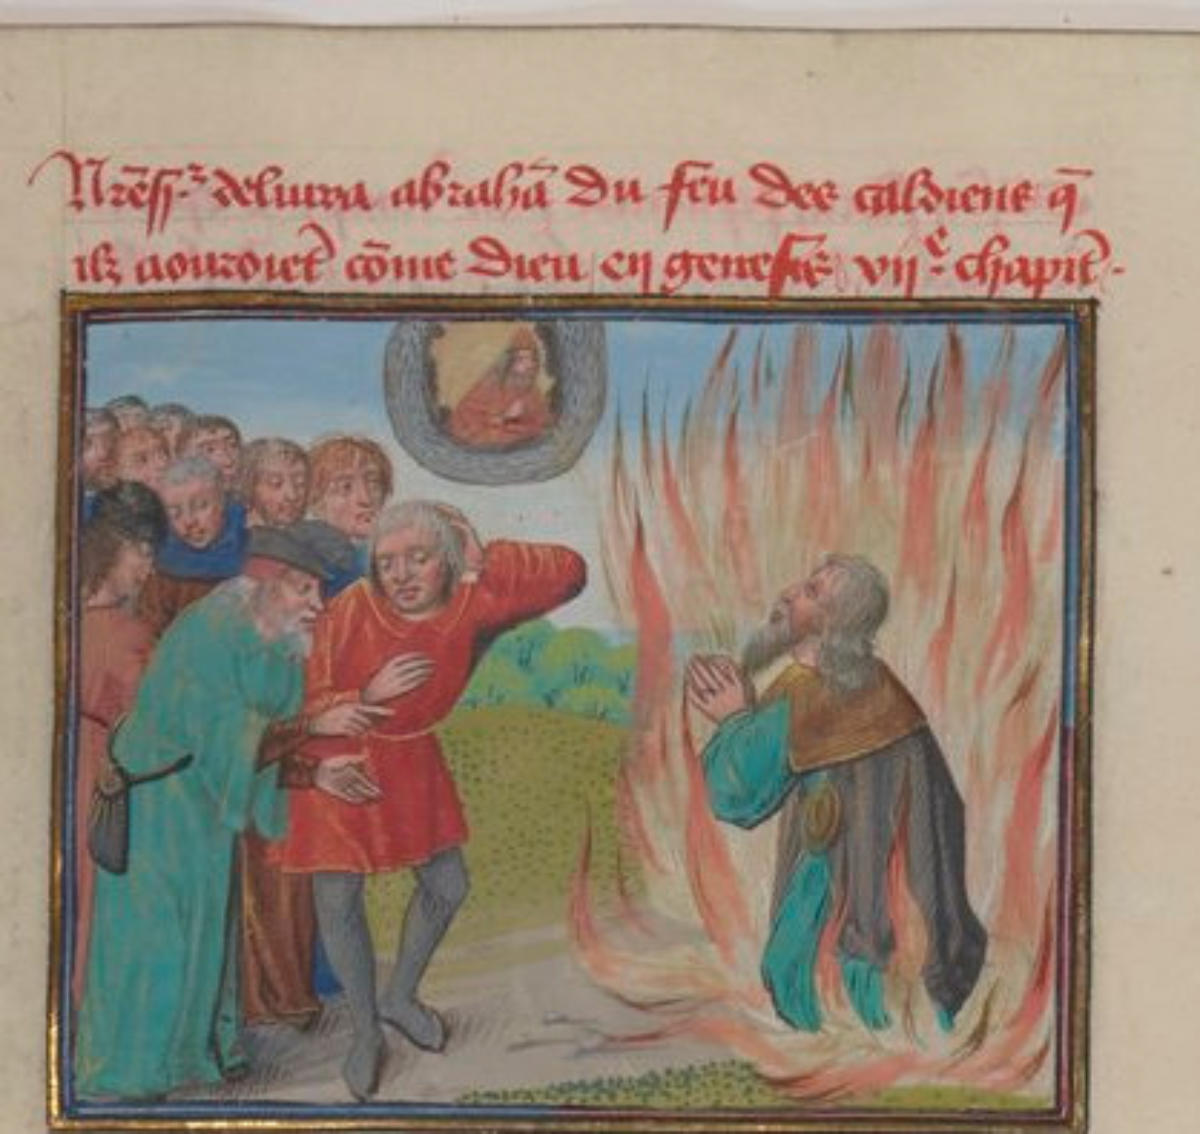 Nr̄ess.ʳ deliura abrahā du feu des caldiens q̄
ilz aouroiēt cōme dieu en genesis vijᵉ. chapit̄.